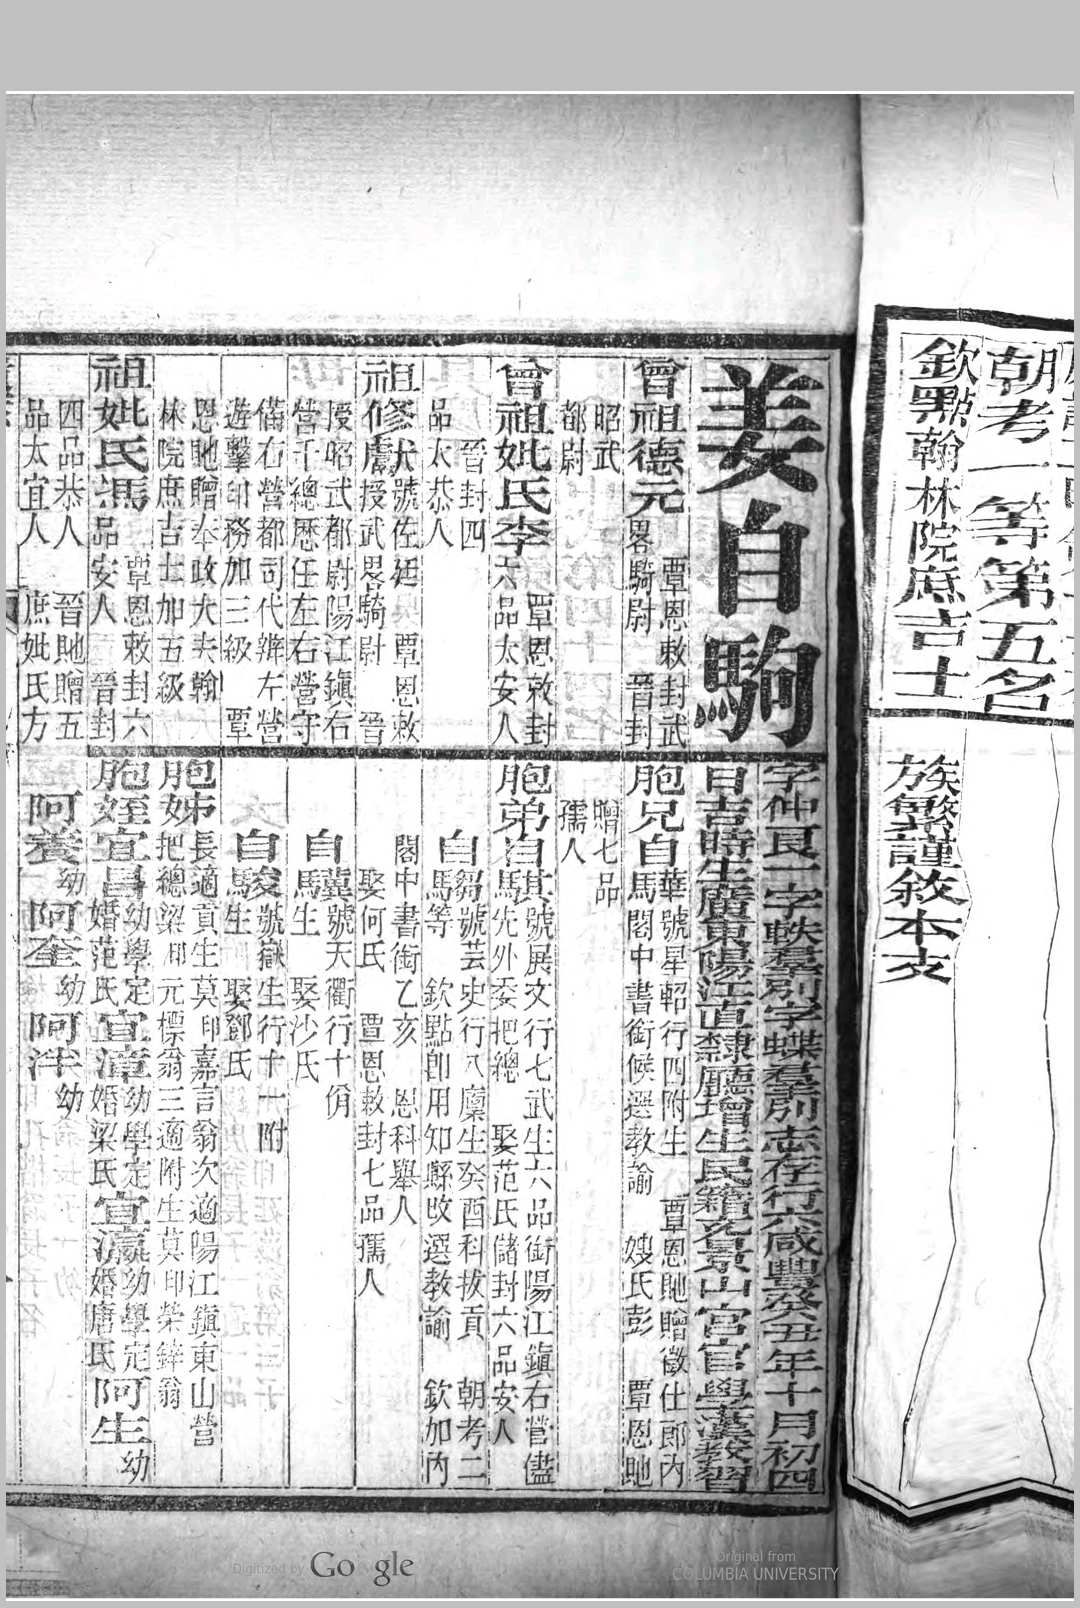 朝考一等第五名
欽點翰林院庶吉士
族繁謹敘本支
姜自騶
字仲良一字軼羣別字蝶羣別志存行六咸豐癸丑年十月初四
日吉時生廣東陽江直隸廳增生民籍充景山宮官學漢教習
曾祖德元
覃恩敕封武
畧騎尉 晉封
昭武
都尉
曾祖妣氏李
覃恩敕封
六品太安人
晉封四
品太恭人
祖修猷
號佐廷 覃恩敕
授武畧騎尉 晉
授昭武都尉陽江鎮右
營千總歷任左右營守
備右營都司代辦左營
遊擊印務加三級 覃
恩貤贈奉政大夫翰
林院庶吉士加五級
祖妣氏馮
覃恩敕封六
品安人 晉封
四品恭人 晉貤贈五
品太宜人 庶妣氏方
胞兄自華
號星軺行四附生 覃恩貤贈徵仕郎內
閣中書銜候選教諭 嫂氏彭 覃恩貤
贈七品
孺人
胞弟自騏
號展文行七武生六品銜陽江鎮右營儘
先外委把總 娶范氏儲封六品安人
自騶
號芸史行八廩生癸酉科拔貢 朝考二
等 欽點即用知縣改選教諭 欽加內
閣中書銜乙亥 恩科舉人
娶何氏 覃恩敕封七品孺人
自驥
號天衢行十俏
生 娶沙氏
自駿
號嶽生行十一附
生 娶鄧氏
胞姊
長適貢生莫印嘉言翁次適陽江鎮東山營
把總梁印元標翁三適附生莫印榮鋅翁
胞姪宜昌
幼學定
婚范氏
宜漳
幼學定
婚梁氏
宜瀛
幼學定
婚唐氏
阿生幼
阿養幼 阿奎幼 阿泮幼
Digitized by Google
Original from
COLUMBIA UNIVERSITY